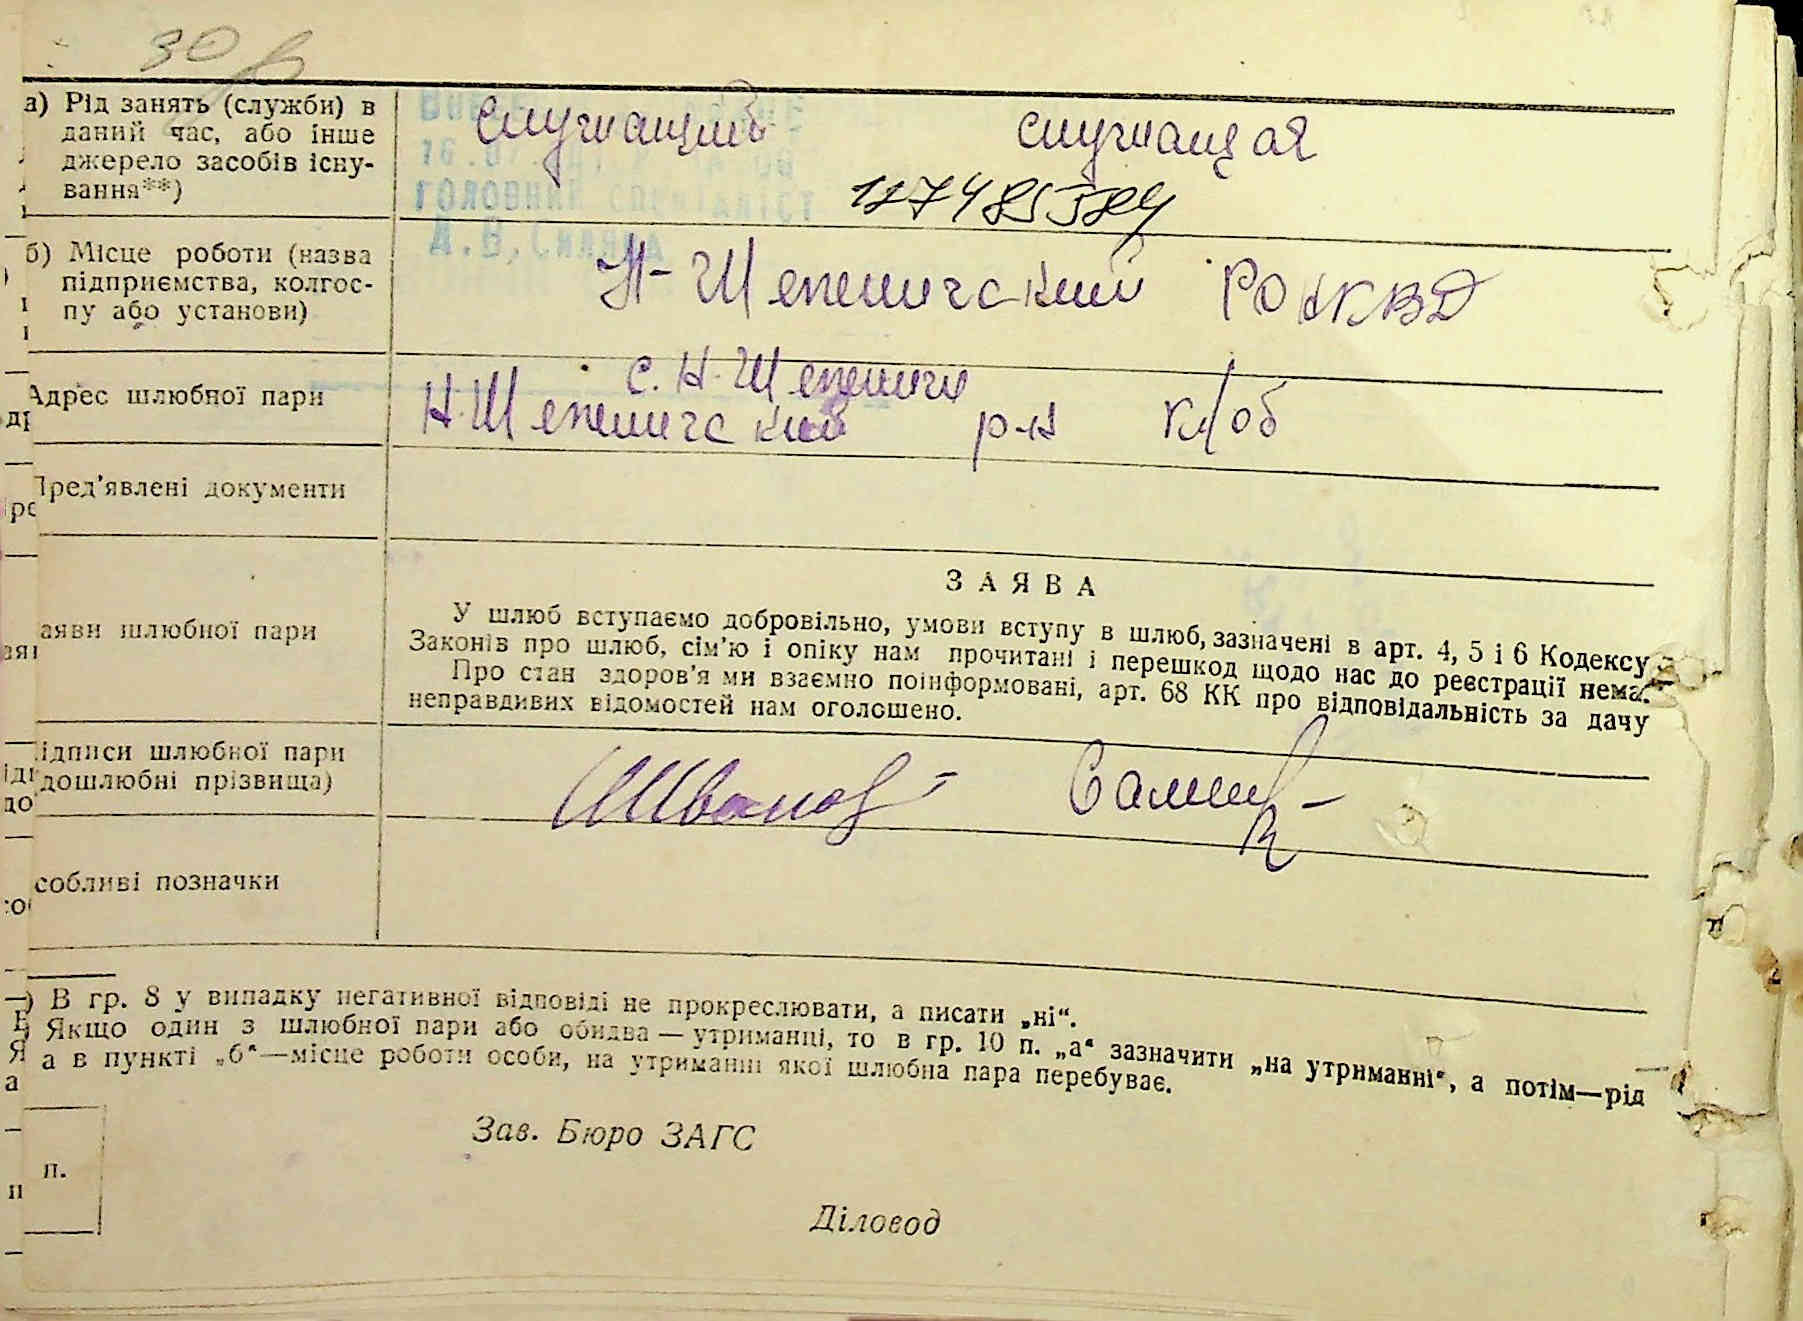 30
а) Рід занять (служби) в
даний час, або інше
джерело засобів існу-
вання**)
служащий служащая
16.07
ГОЛОВНИЙ СПЕЦІАЛІСТ
А.В.
127485389
б) Місце роботи (назва
підприємства, колгос-
пу або установи)
Н-Шепеличский РОНКВД
Адрес шлюбної пари
с. Н-Шепеличи
Н-Шепеличский р-н к/об
Пред’явлені документи
аяви шлюбної пари
ЗАЯВА
У шлюб вступаємо добровільно, умови вступу в шлюб, зазначені в арт. 4, 5 і 6 Кодексу
Законів про шлюб, сім’ю і опіку нам прочитані і перешкод щодо нас до реєстрації нема.
Про стан здоров’я ми взаємно поінформовані, арт. 68 КК про відповідальність за дачу
неправдивих відомостей нам оголошено.
ідписи шлюбної пари
дошлюбні прізвища)
собливі позначки
) В гр. 8 у випадку негативної відповіді не прокреслювати, а писати „ні“.
) Якщо один з шлюбної пари або обидва — утриманці, то в гр. 10 п. „а“ зазначити „на утриманні“, а потім—рід
а в пункті „б“—місце роботи особи, на утриманні якої шлюбна пара перебуває.
Зав. Бюро ЗАГС
п.
Діловод